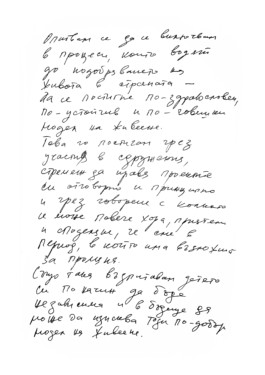 Опитвам се да се включвам
в процеси, които водят
до подобряването на
живота в страната –
да се постигне по-здравословен,
по-устойчив и по-човешки
модел на живеене.
Това го постигам чрез
участия в сдружения,
стремеж да правя проектите
си отговорно и принципно
и чрез говорене с колкото
се може повече хора, приятели
и опоненти, че сме в
период, в който има възможност
за промяна.
Също така възпитавам детето
си по начин да бъде
независима и в бъдеще да
може да изисква този по-добър
модел на живеене.